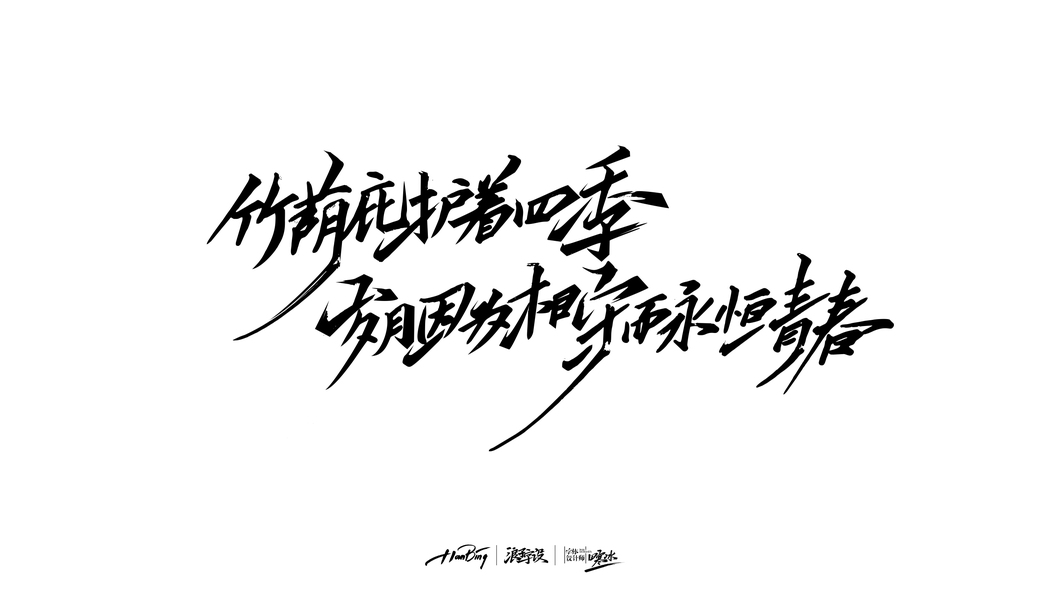 竹荫庇护着四季
岁月因为相守而永恒青春
HanBing
字体
设计师